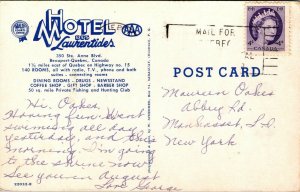 HOTEL
des
Laurentides
AAA
350 Ste. Anne Blvd.
Beauport-Quebec, Canada
1¼ miles east of Quebec on Highway no. 15
140 ROOMS, all with radio, T.V., phone and bath
suites - connecting rooms
DINING ROOMS - DRUGS - NEWSSTAND
COFFEE SHOP - GIFT SHOP - BARBER SHOP
50 sq. mile Private Fishing and Hunting Club
MAIL FOR
CANADA
POST CARD
Hi. Oakes,
Having fun. Went
swimming all day
Saturday and this
morning. I'm going
to the shrine now
See you in August
Love George
Maureen Oakes
Albury Rd.
Manhasset, L.I.
New York